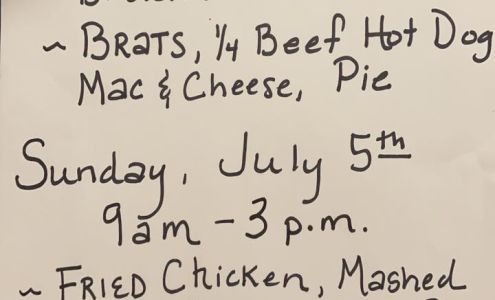 ~ BRATS, 1/4 Beef Hot Dog
Mac & Cheese, Pie
Sunday, July 5th
9am - 3 p.m.
~ FRIED Chicken, Mashed